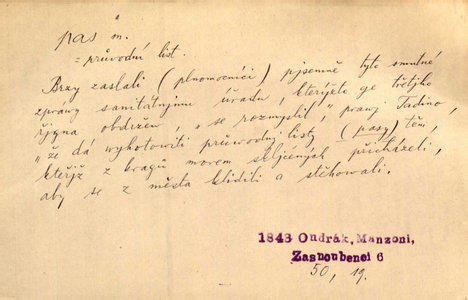 pas m.
= průvodní list.
Brzy zaslali (plnomocníci) pjsemně tyto smutné
zprávy sanitátnjmu úřadu, kterýžto ge třetjho
řjgna obdržew, „se rozmyslil," prawj Tadino,
„že dá wyhotowiti průwodnj listy (pasy) těm,
kteřjž z kragů morem sljčených přicházeli,
aby se z města klidili a stěhowali.
1843 Ondrák, Manzoni,
Zasnoubenci 6
50, 19.